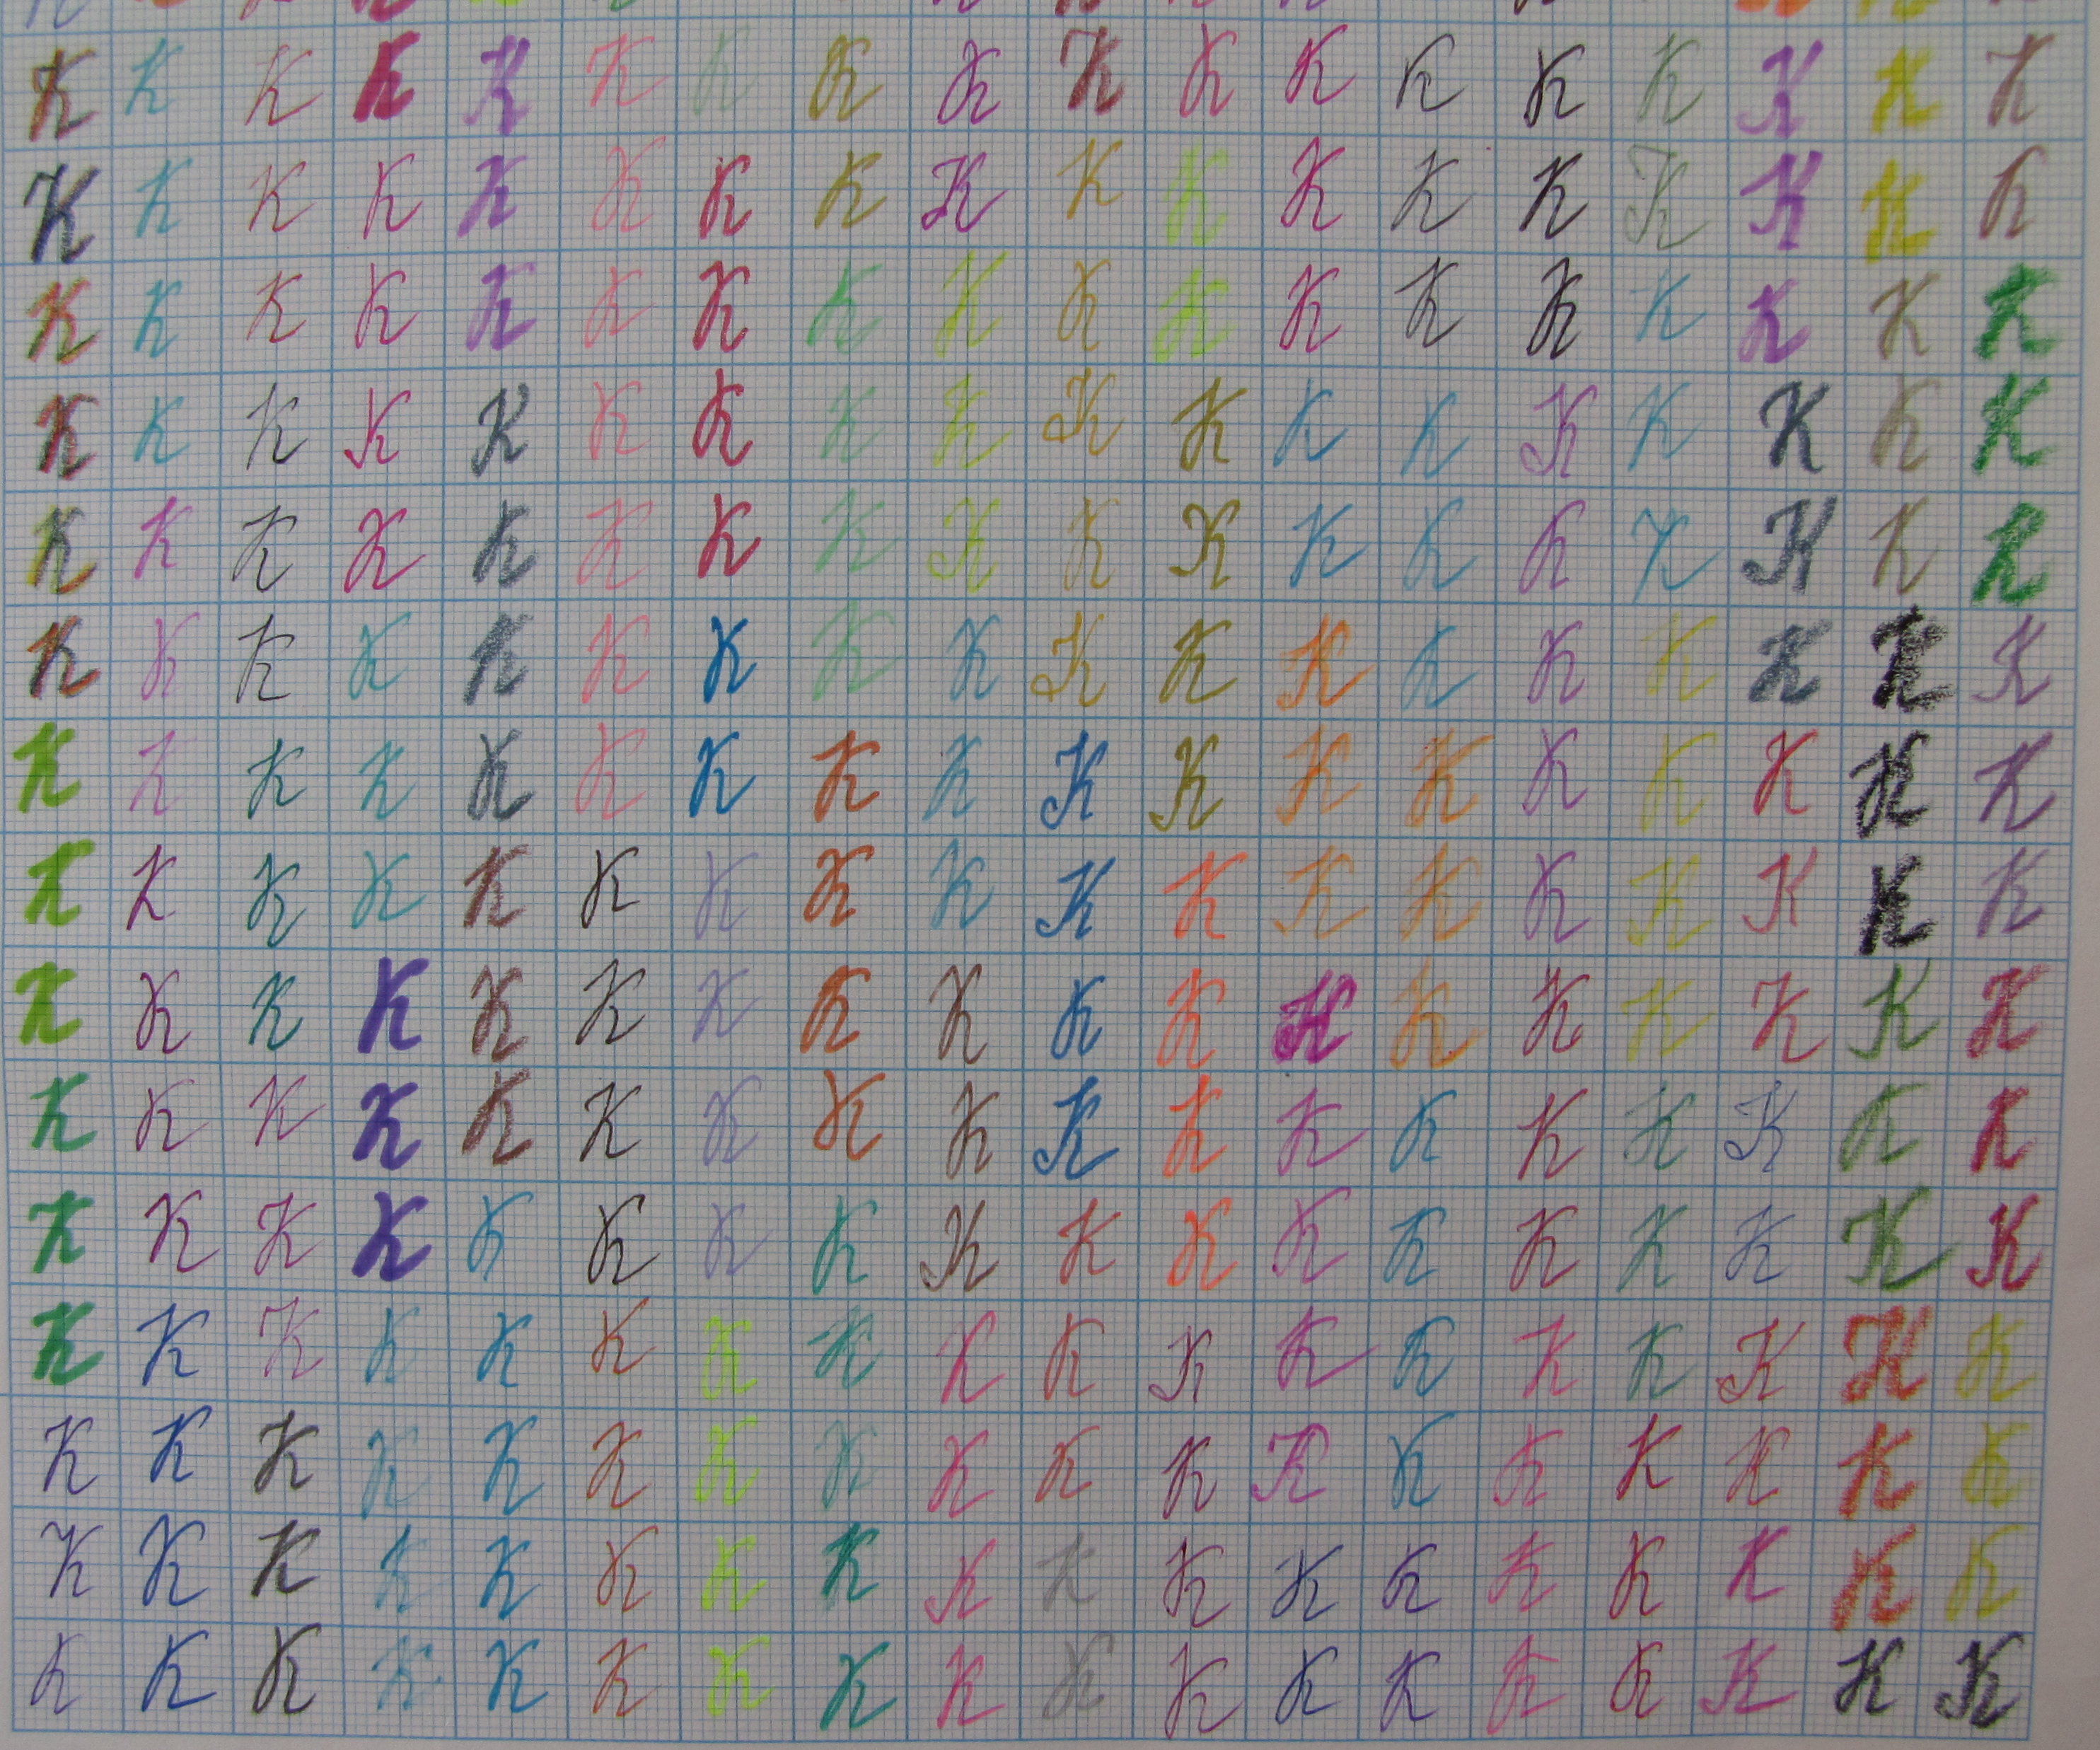 K K K K K K K K K K K K K K K K K K
K K K K K K K K K K K K K K K K K K
K K K K K K K K K K K K K K K K K K
K K K K K K K K K K K K K K K K K K
K K K K K K K K K K K K K K K K K K
K K K K K K K K K K K K K K K K K K
K K K K K K K K K K K K K K K K K K
K K K K K K K K K K K K K K K K K K
K K K K K K K K K K K K K K K K K K
K K K K K K K K K K K K K K K K K K
K K K K K K K K K K K K K K K K K K
K K K K K K K K K K K K K K K K K K
K K K K K K K K K K K K K K K K K K
K K K K K K K K K K K K K K K K K K
K K K K K K K K K K K K K K K K K K